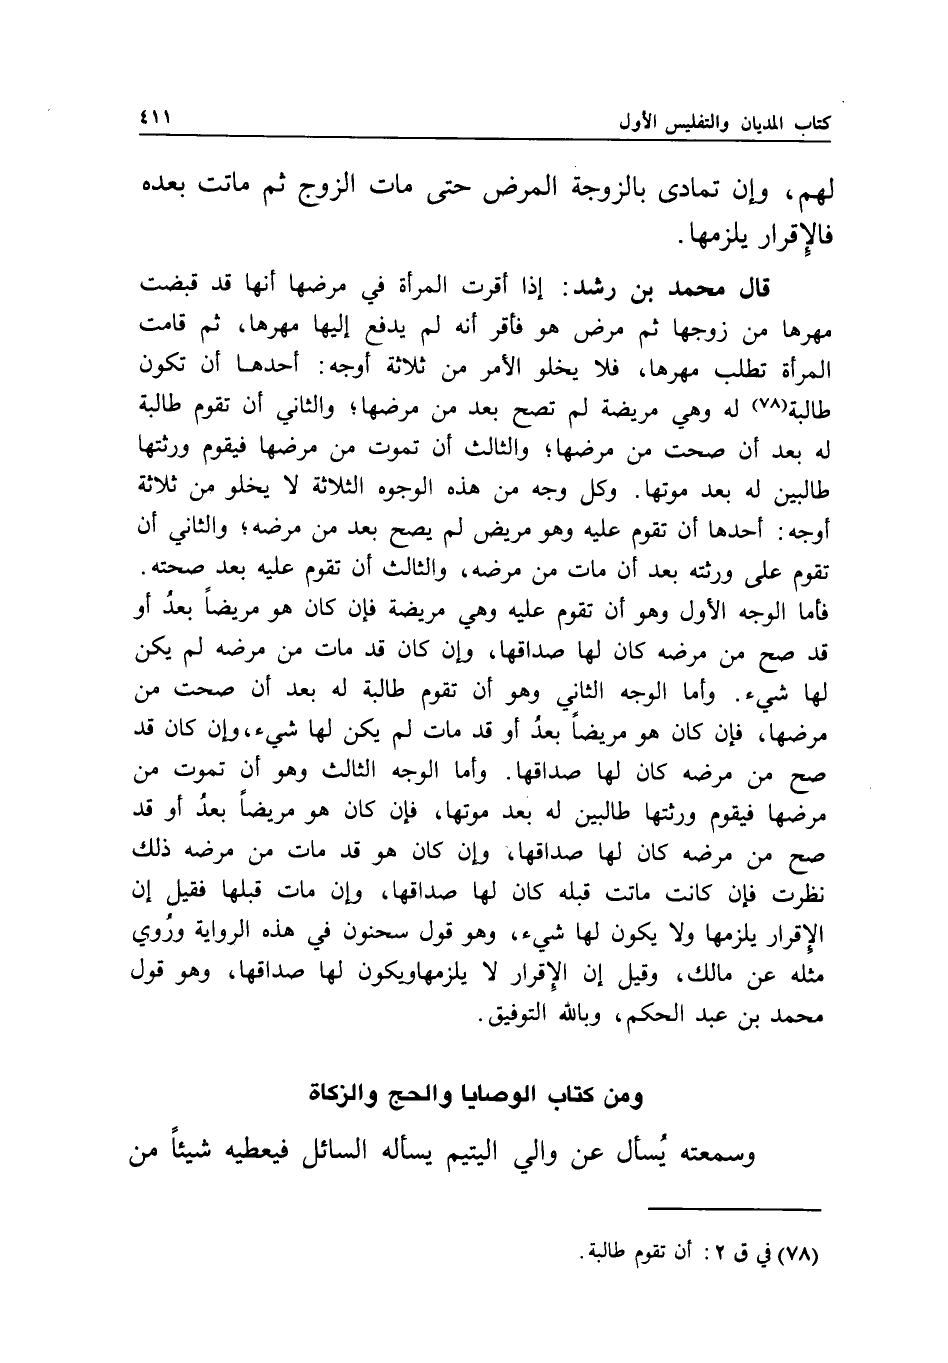 كتاب المديان والتفليس الأول ٤١١
لهم، وإن تمادى بالزوجة المرض حتى مات الزوج ثم ماتت بعده
فالإقرار يلزمها.
قال محمد بن رشد: إذا أقرت المرأة في مرضها أنها قد قبضت
مهرها من زوجها ثم مرض هو فأقر أنه لم يدفع إليها مهرها، ثم قامت
المرأة تطلب مهرها، فلا يخلو الأمر من ثلاثة أوجه: أحدهـا أن تكون
طالبة(٧٨) له وهي مريضة لم تصح بعد من مرضها؛ والثاني أن تقوم طالبة
له بعد أن صحت من مرضها؛ والثالث أن تموت من مرضها فيقوم ورثتها
طالبين له بعد موتها. وكل وجه من هذه الوجوه الثلاثة لا يخلو من ثلاثة
أوجه: أحدها أن تقوم عليه وهو مريض لم يصح بعد من مرضه؛ والثاني أن
تقوم على ورثته بعد أن مات من مرضه، والثالث أن تقوم عليه بعد صحته.
فأما الوجه الأول وهو أن تقوم عليه وهي مريضة فإن كان هو مريضاً بعدُ أو
قد صح من مرضه كان لها صداقها، وإن كان قد مات من مرضه لم يكن
لها شيء. وأما الوجه الثاني وهو أن تقوم طالبة له بعد أن صحت من
مرضها، فإن كان هو مريضاً بعدُ أو قد مات لم يكن لها شيء، وإن كان قد
صح من مرضه كان لها صداقها. وأما الوجه الثالث وهو أن تموت من
مرضها فيقوم ورثتها طالبين له بعد موتها، فإن كان هو مريضاً بعدُ أو قد
صح من مرضه كان لها صداقها، وإن كان هو قد مات من مرضه ذلك
نظرت فإن كانت ماتت قبله كان لها صداقها، وإن مات قبلها فقيل إن
الإقرار يلزمها ولا يكون لها شيء، وهو قول سحنون في هذه الرواية ورُوي
مثله عن مالك، وقيل إن الإقرار لا يلزمهاويكون لها صداقها، وهو قول
محمد بن عبد الحكم، وبالله التوفيق.
ومن كتاب الوصايا والحج والزكاة
وسمعته يُسأل عن والي اليتيم يسأله السائل فيعطيه شيئاً من
(٧٨) في ق ٢: أن تقوم طالبة.